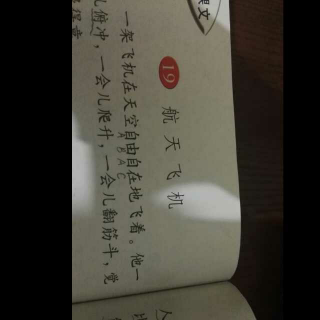 课文
19
航天飞机
一架飞机在天空自由自在地飞着。他一
A B A C
儿俯冲，一会儿爬升，一会儿翻筋斗，觉